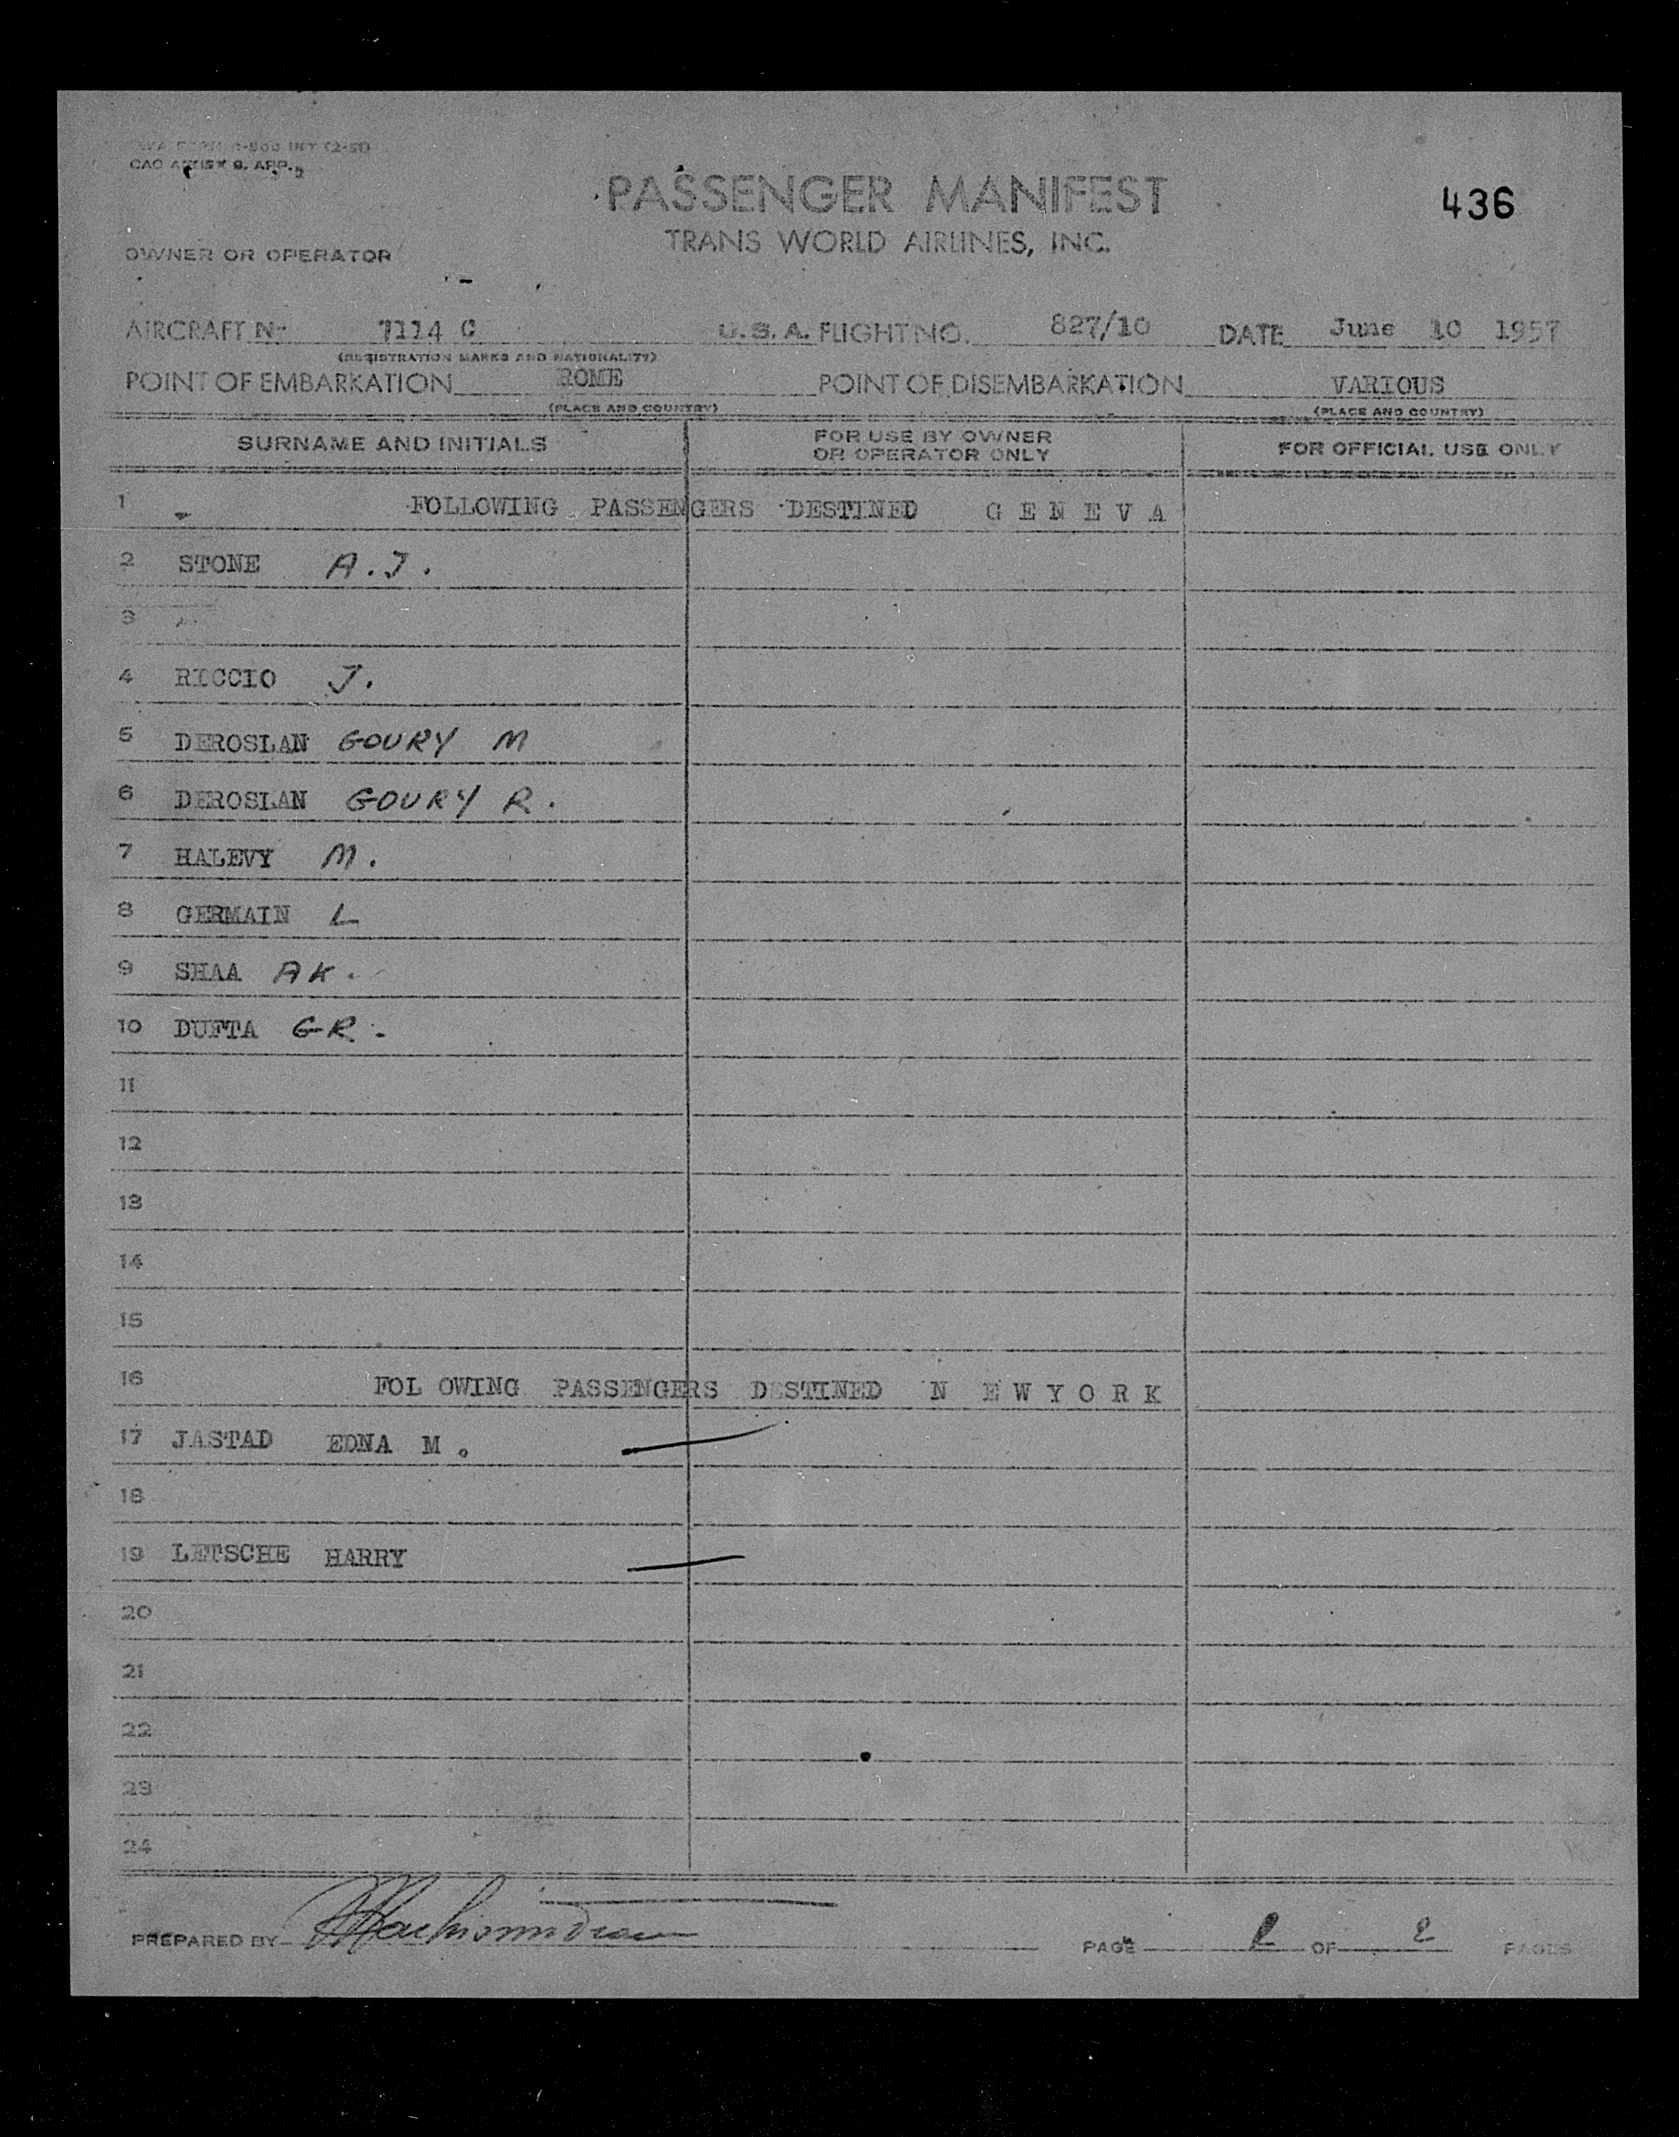 CAO ANNEX 9. APP. 2
PASSENGER MANIFEST
436
TRANS WORLD AIRLINES, INC.
OWNER OR OPERATOR
AIRCRAFT N- 7114 C U.S.A. FLIGHT NO. 827/10 DATE June 10 1957
(REGISTRATION MARKS AND NATIONALITY)
POINT OF EMBARKATION ROME POINT OF DISEMBARKATION VARIOUS
(PLACE AND COUNTRY) (PLACE AND COUNTRY)
SURNAME AND INITIALS FOR USE BY OWNER OR OPERATOR ONLY FOR OFFICIAL USE ONLY
1 FOLLOWING PASSENGERS DESTINED G E N E V A
2 STONE A.J.
3
4 RICCIO J.
5 DEROSLAN GOURY M
6 DEROSLAN GOURY R.
7 HALEVY M.
8 GERMAIN L
9 SHAA AK.
10 DUFTA GR.
11
12
13
14
15
16 FOL OWING PASSENGERS D STINED N E W Y O R K
17 JASTAD EDNA M.
18
19 LETSCHE HARRY
20
21
22
23
24
PREPARED BY PAGE 2 OF 2 PAGES